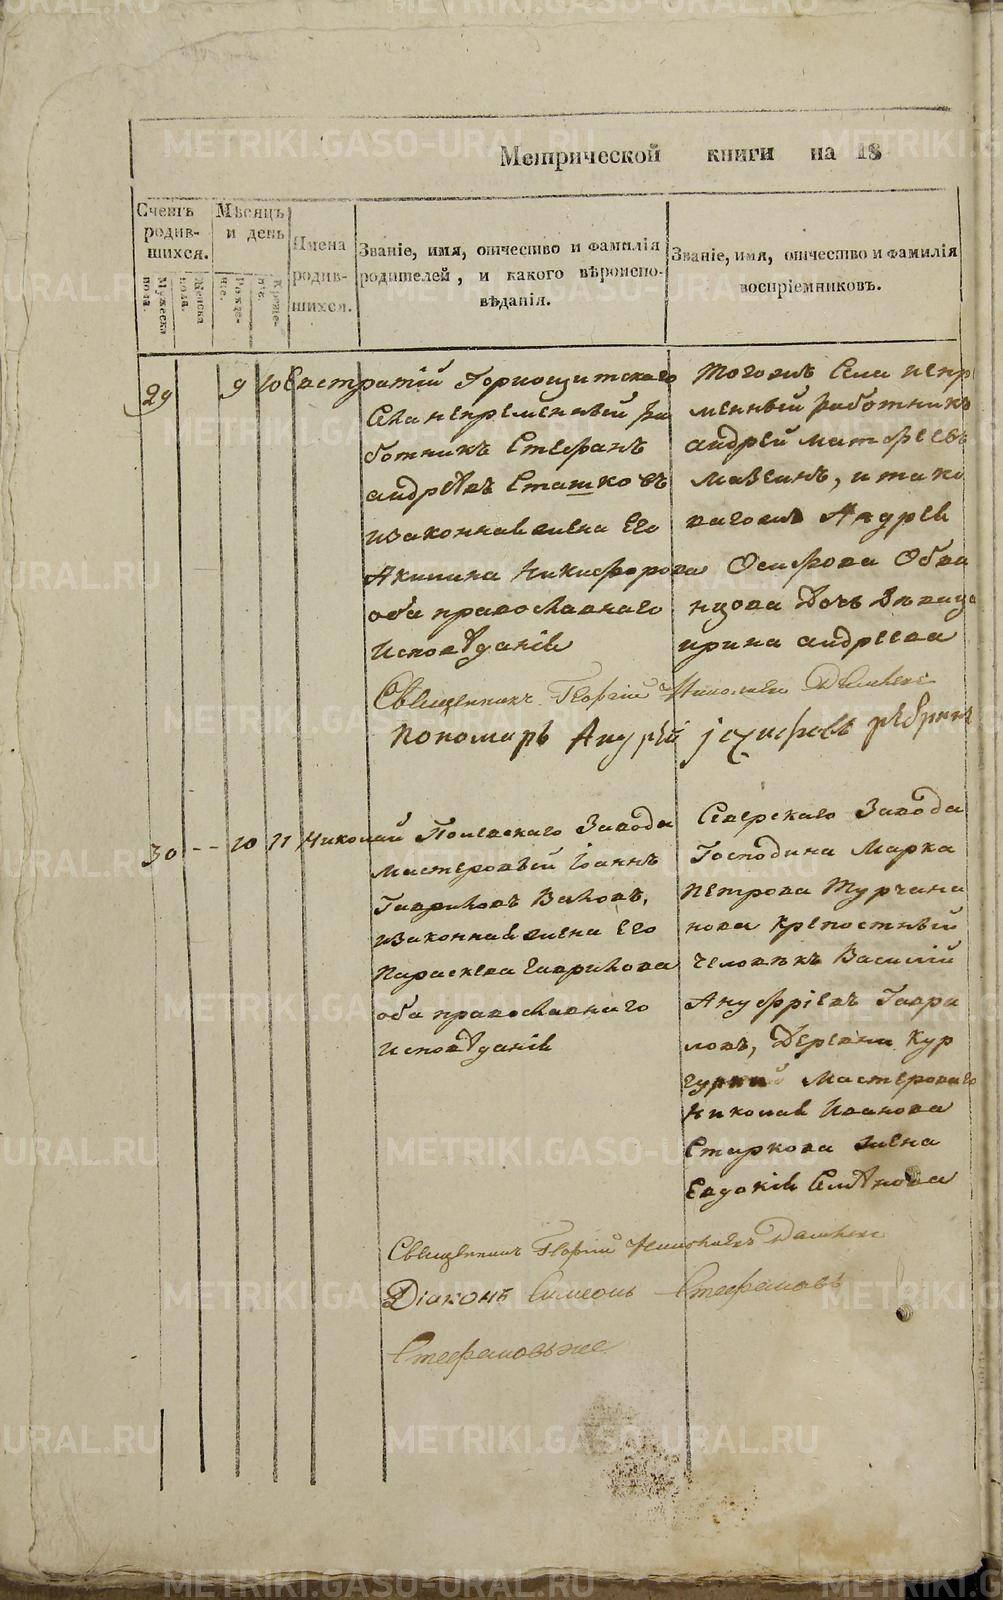 Метрической книги на 18
Счетъ родив-
шихся.
Мужеска
пола.
Женска
пола.
Мѣсяцъ
и день
Рожде-
нія.
Креще-
нія.
Имена
родив-
шихся.
Званіе, имя, отчество и фамилія
родителей, и какого вѣроиспо-
вѣданія.
Званіе, имя, отчество и фамилія
воспріемниковъ.
29 9 10 Евстратій Горнощитскаго
Села непременный ра
ботникъ Стефанъ
андрѣевъ Сташковъ
изаконная жена Его
Акилина Никифорова
оба православнаго
Исповѣданія
Тогожъ Села непре
менный работникъ
андрей матфеевъ
мазеинъ, и тако
вагожъ Андрея
Осифова Обва
нцова дочь девица
ирина андреева
Священникъ Георгій Николаевъ
Пономарь Андрей
30 -- 10 11 Николай Полевскаго Завода
мастеровый Іоаннъ
Гавриловъ Валовъ,
изаконная жена Его
Параскева Гаврилова
оба православнаго
исповѣданія
Северскаго Завода
Господина Марка
Петрова Турчани
нова крепостный
человѣкъ Василій
Ануфріевъ Гаври
ловъ, Деревни Кур
гурки мастероваго
Николая Иванова
Старкова жена
Евдокія Семѣнова
Священникъ Георгій Николаевъ
Діаконъ Симеонъ Стефановъ
Стефановъ же
METRIKI.GASO-URAL.RU